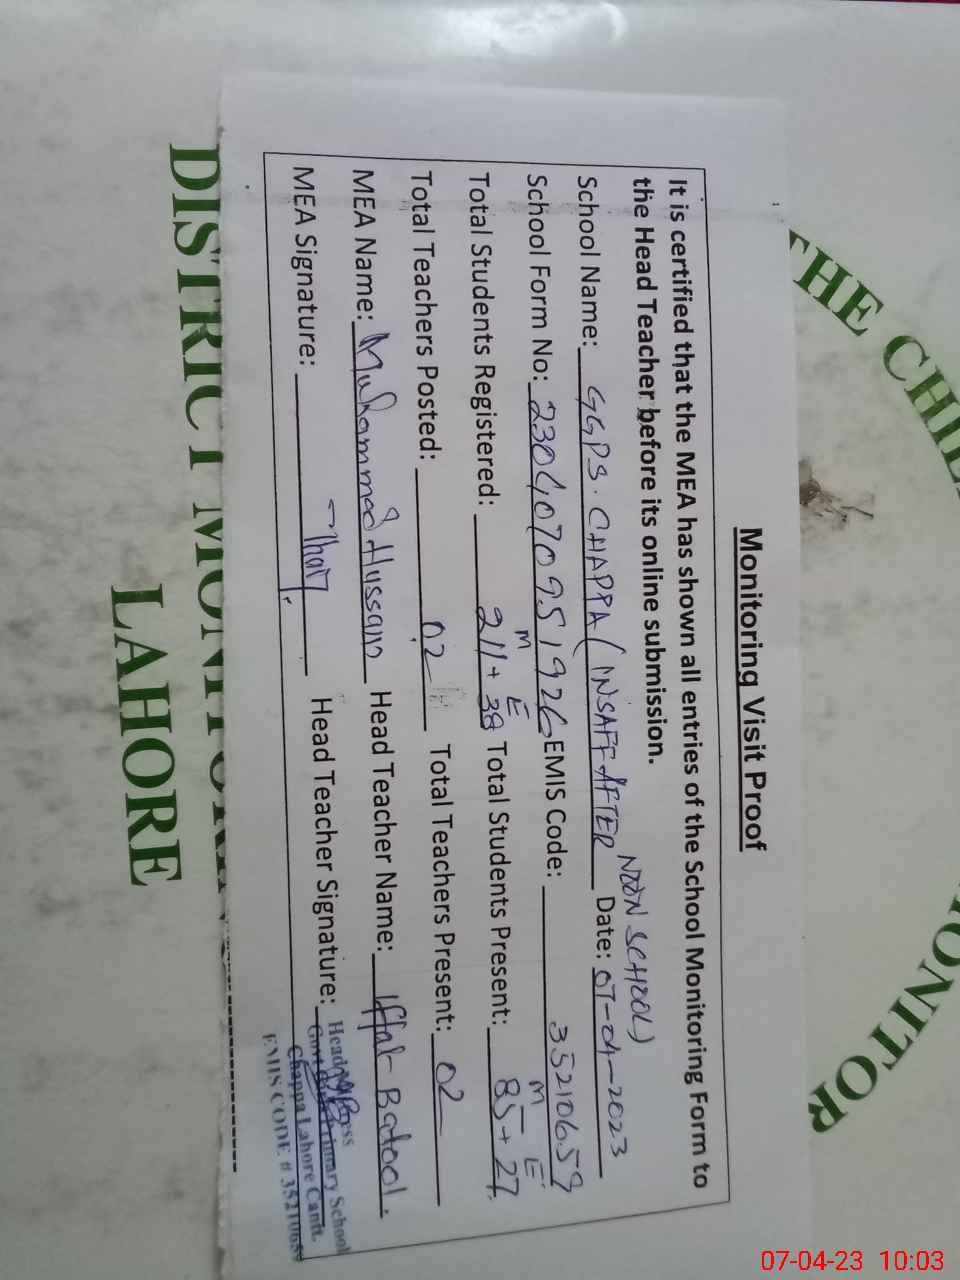 Monitoring Visit Proof
It is certified that the MEA has shown all entries of the School Monitoring Form to
the Head Teacher before its online submission.
NOON SCHOOL)
School Name: GGPS. CHAPPA (INSAFF AFTER Date: 07-04-2023
School Form No: 2304070951926 EMIS Code: 35210659
M E M E
Total Students Registered: 211+38 Total Students Present: 85+27
Total Teachers Posted: 02 Total Teachers Present: 02
MEA Name: Muhammad Hussain Head Teacher Name: Iffat Batool.
MEA Signature: Head Teacher Signature:
Primary School
Chappa Lahore Cantt.
EMIS CODE # 35210659
THE CHIL
MONITOR
DISTRICT MONITORING
LAHORE
07-04-23 10:03